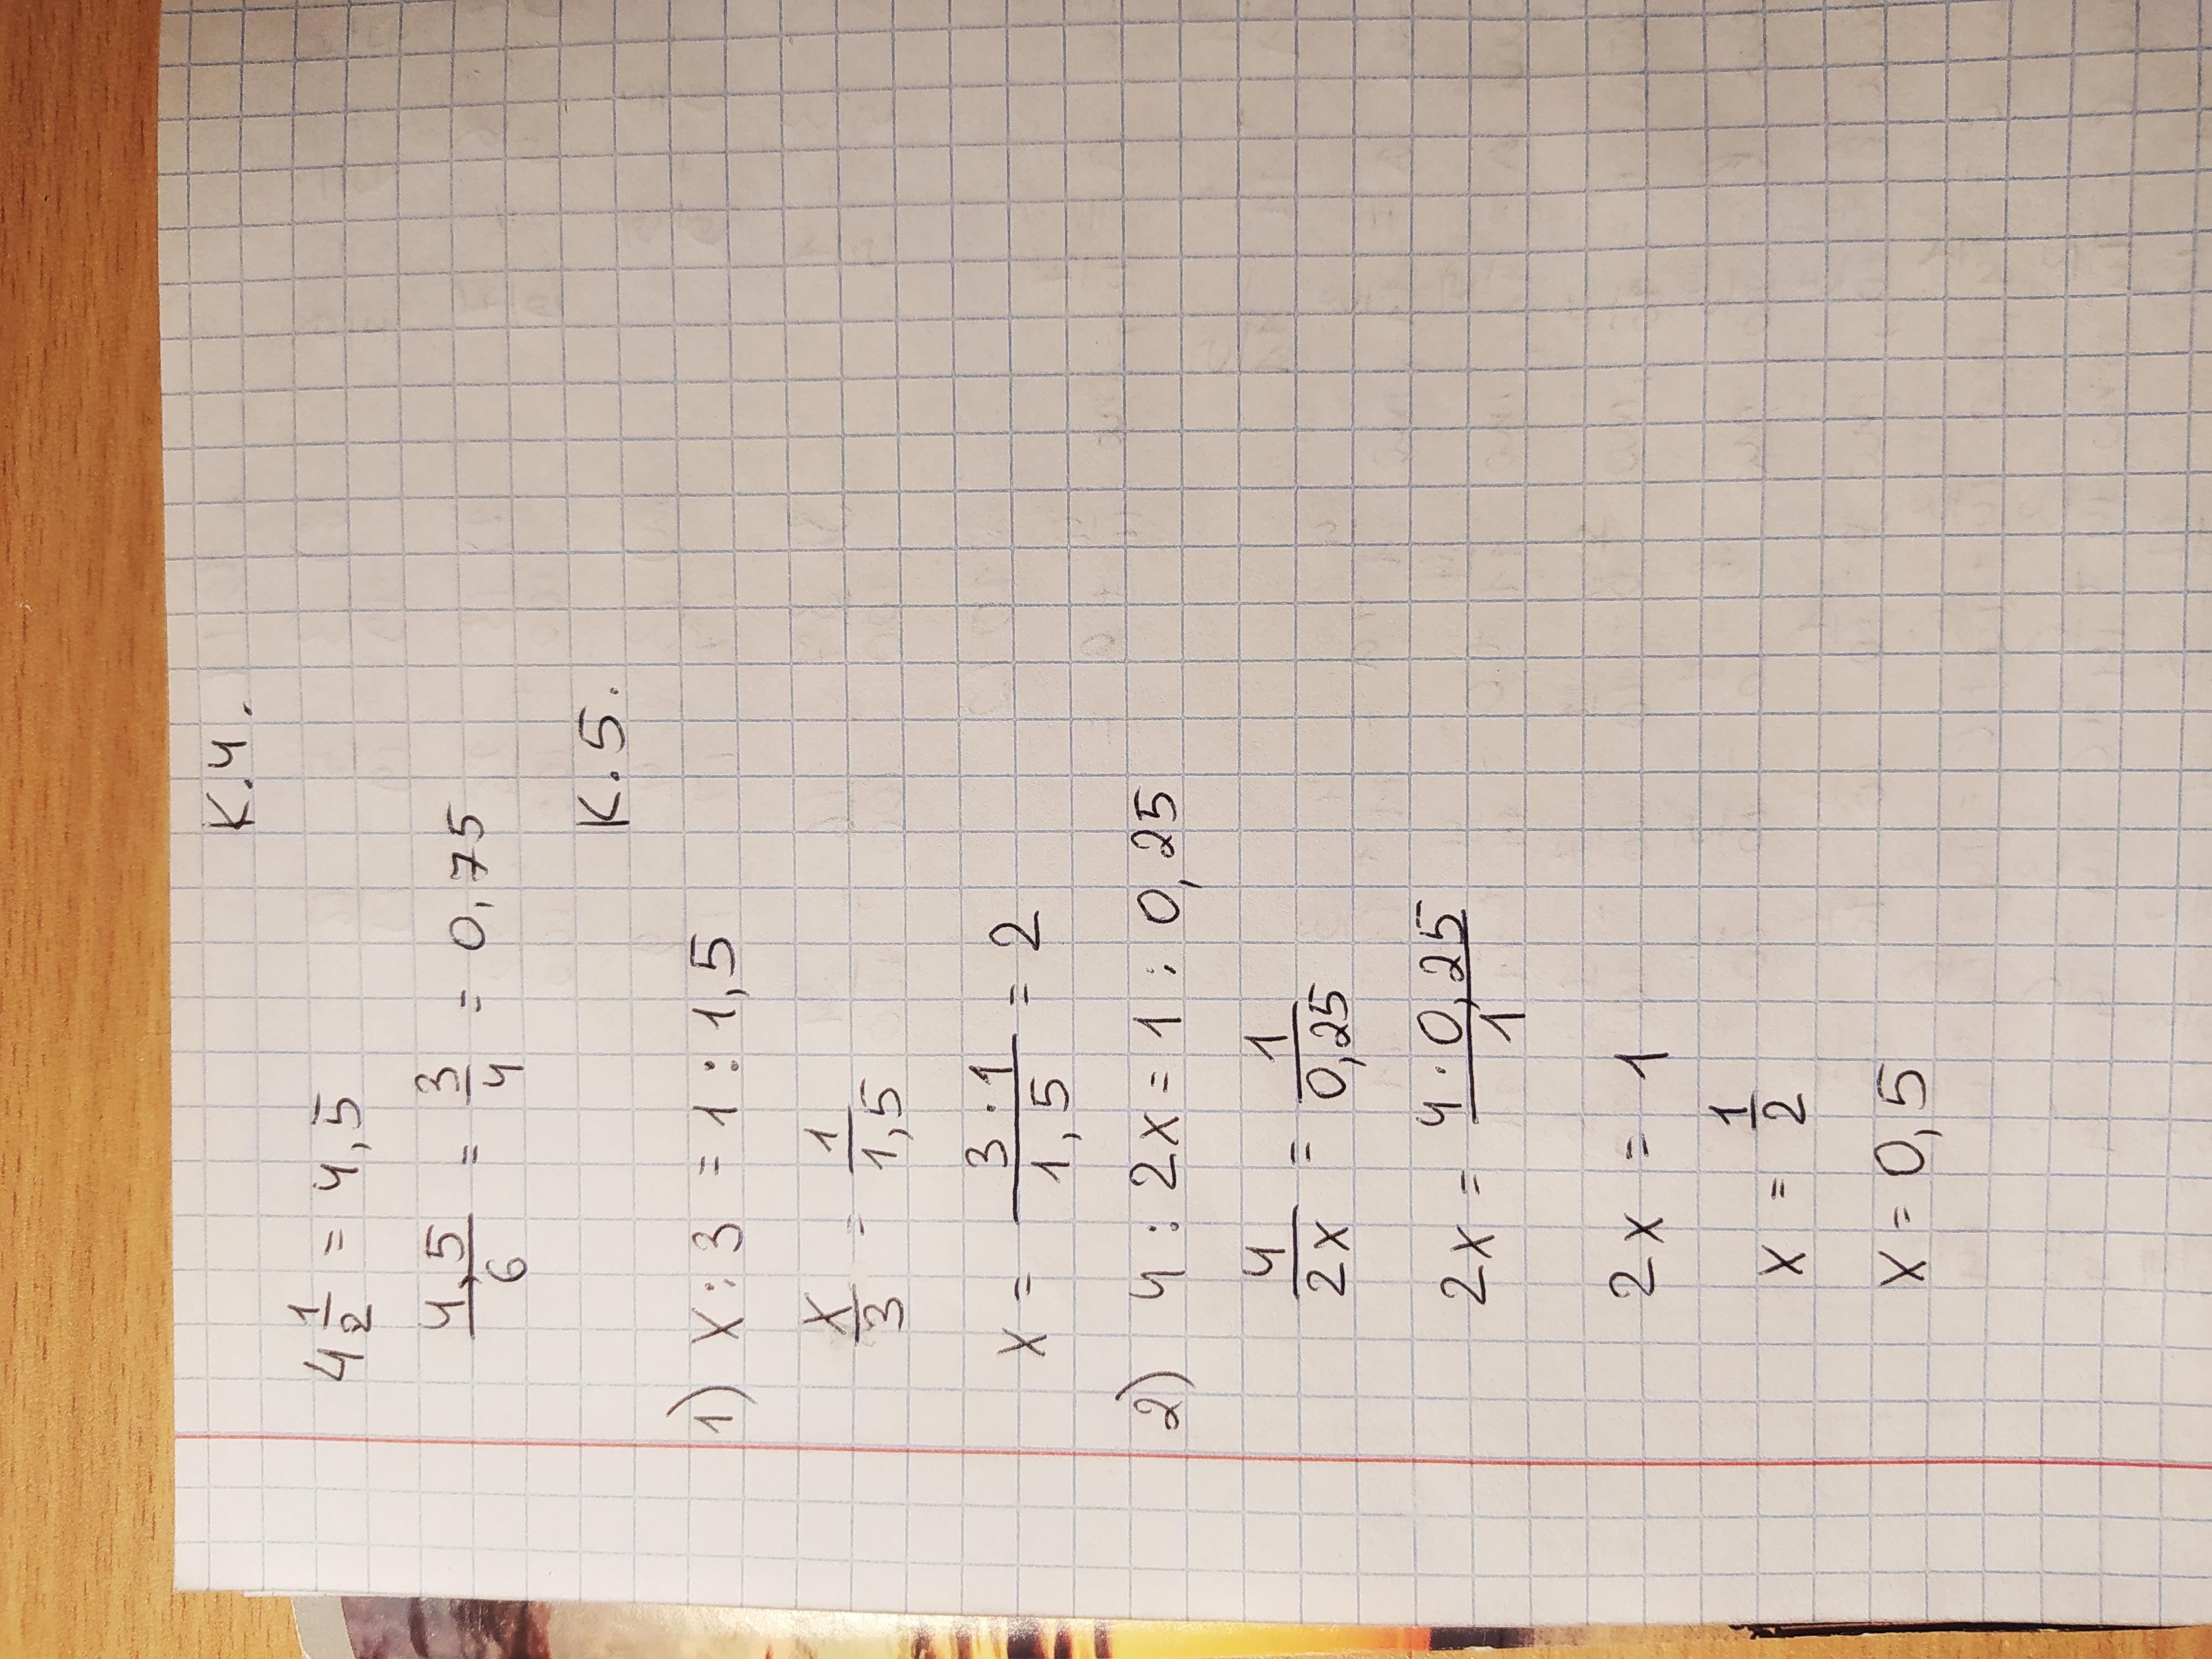 К.4.
4 1/2 = 4,5
4,5/6 = 3/4 = 0,75
К.5.
1) x : 3 = 1 : 1,5
x/3 = 1/1,5
x = 3·1/1,5 = 2
2) 4 : 2x = 1 : 0,25
4/2x = 1/0,25
2x = 4·0,25/1
2x = 1
x = 1/2
x = 0,5